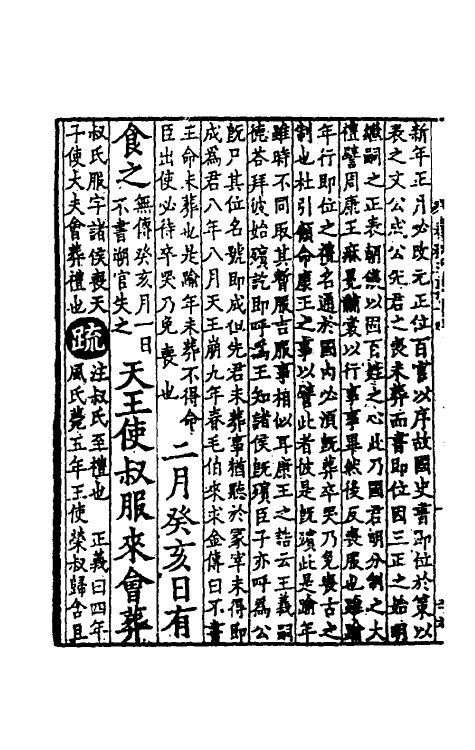 新年正月必改元正位百官以序故國史書即位於策以
表之文公成公先君之喪未葬而書即位因三正之始明
繼嗣之正表朝儀以固百姓之心此乃國君明分制之大
禮譬周康王麻冕黼裳以行事事畢然後反喪服也雖踰
年行即位之禮名通於國內必須旣葬卒哭乃免喪古之
制也杜引顧命康王之事以譬此者彼是旣殯此是踰年
雖時不同取其暫服吉服事相似耳康王之誥云王義嗣
德荅拜彼始殯訖即呼爲王知諸侯旣殯臣子亦呼爲公
旣尸其位名號即成但先君未葬事猶聽於冢宰未得即
成爲君八年八月天王崩九年春毛伯來求金傳曰不書
王命未葬也是踰年未葬不得命
臣出使必待卒哭乃免喪也
二月癸亥日有
食之
無傳癸亥月一日
不書朔官失之
天王使叔服來會葬
叔氏服字諸侯喪天
子使大夫會葬禮也
疏
注叔氏至禮也 正義曰四年
風氏薨五年王使榮叔歸含且